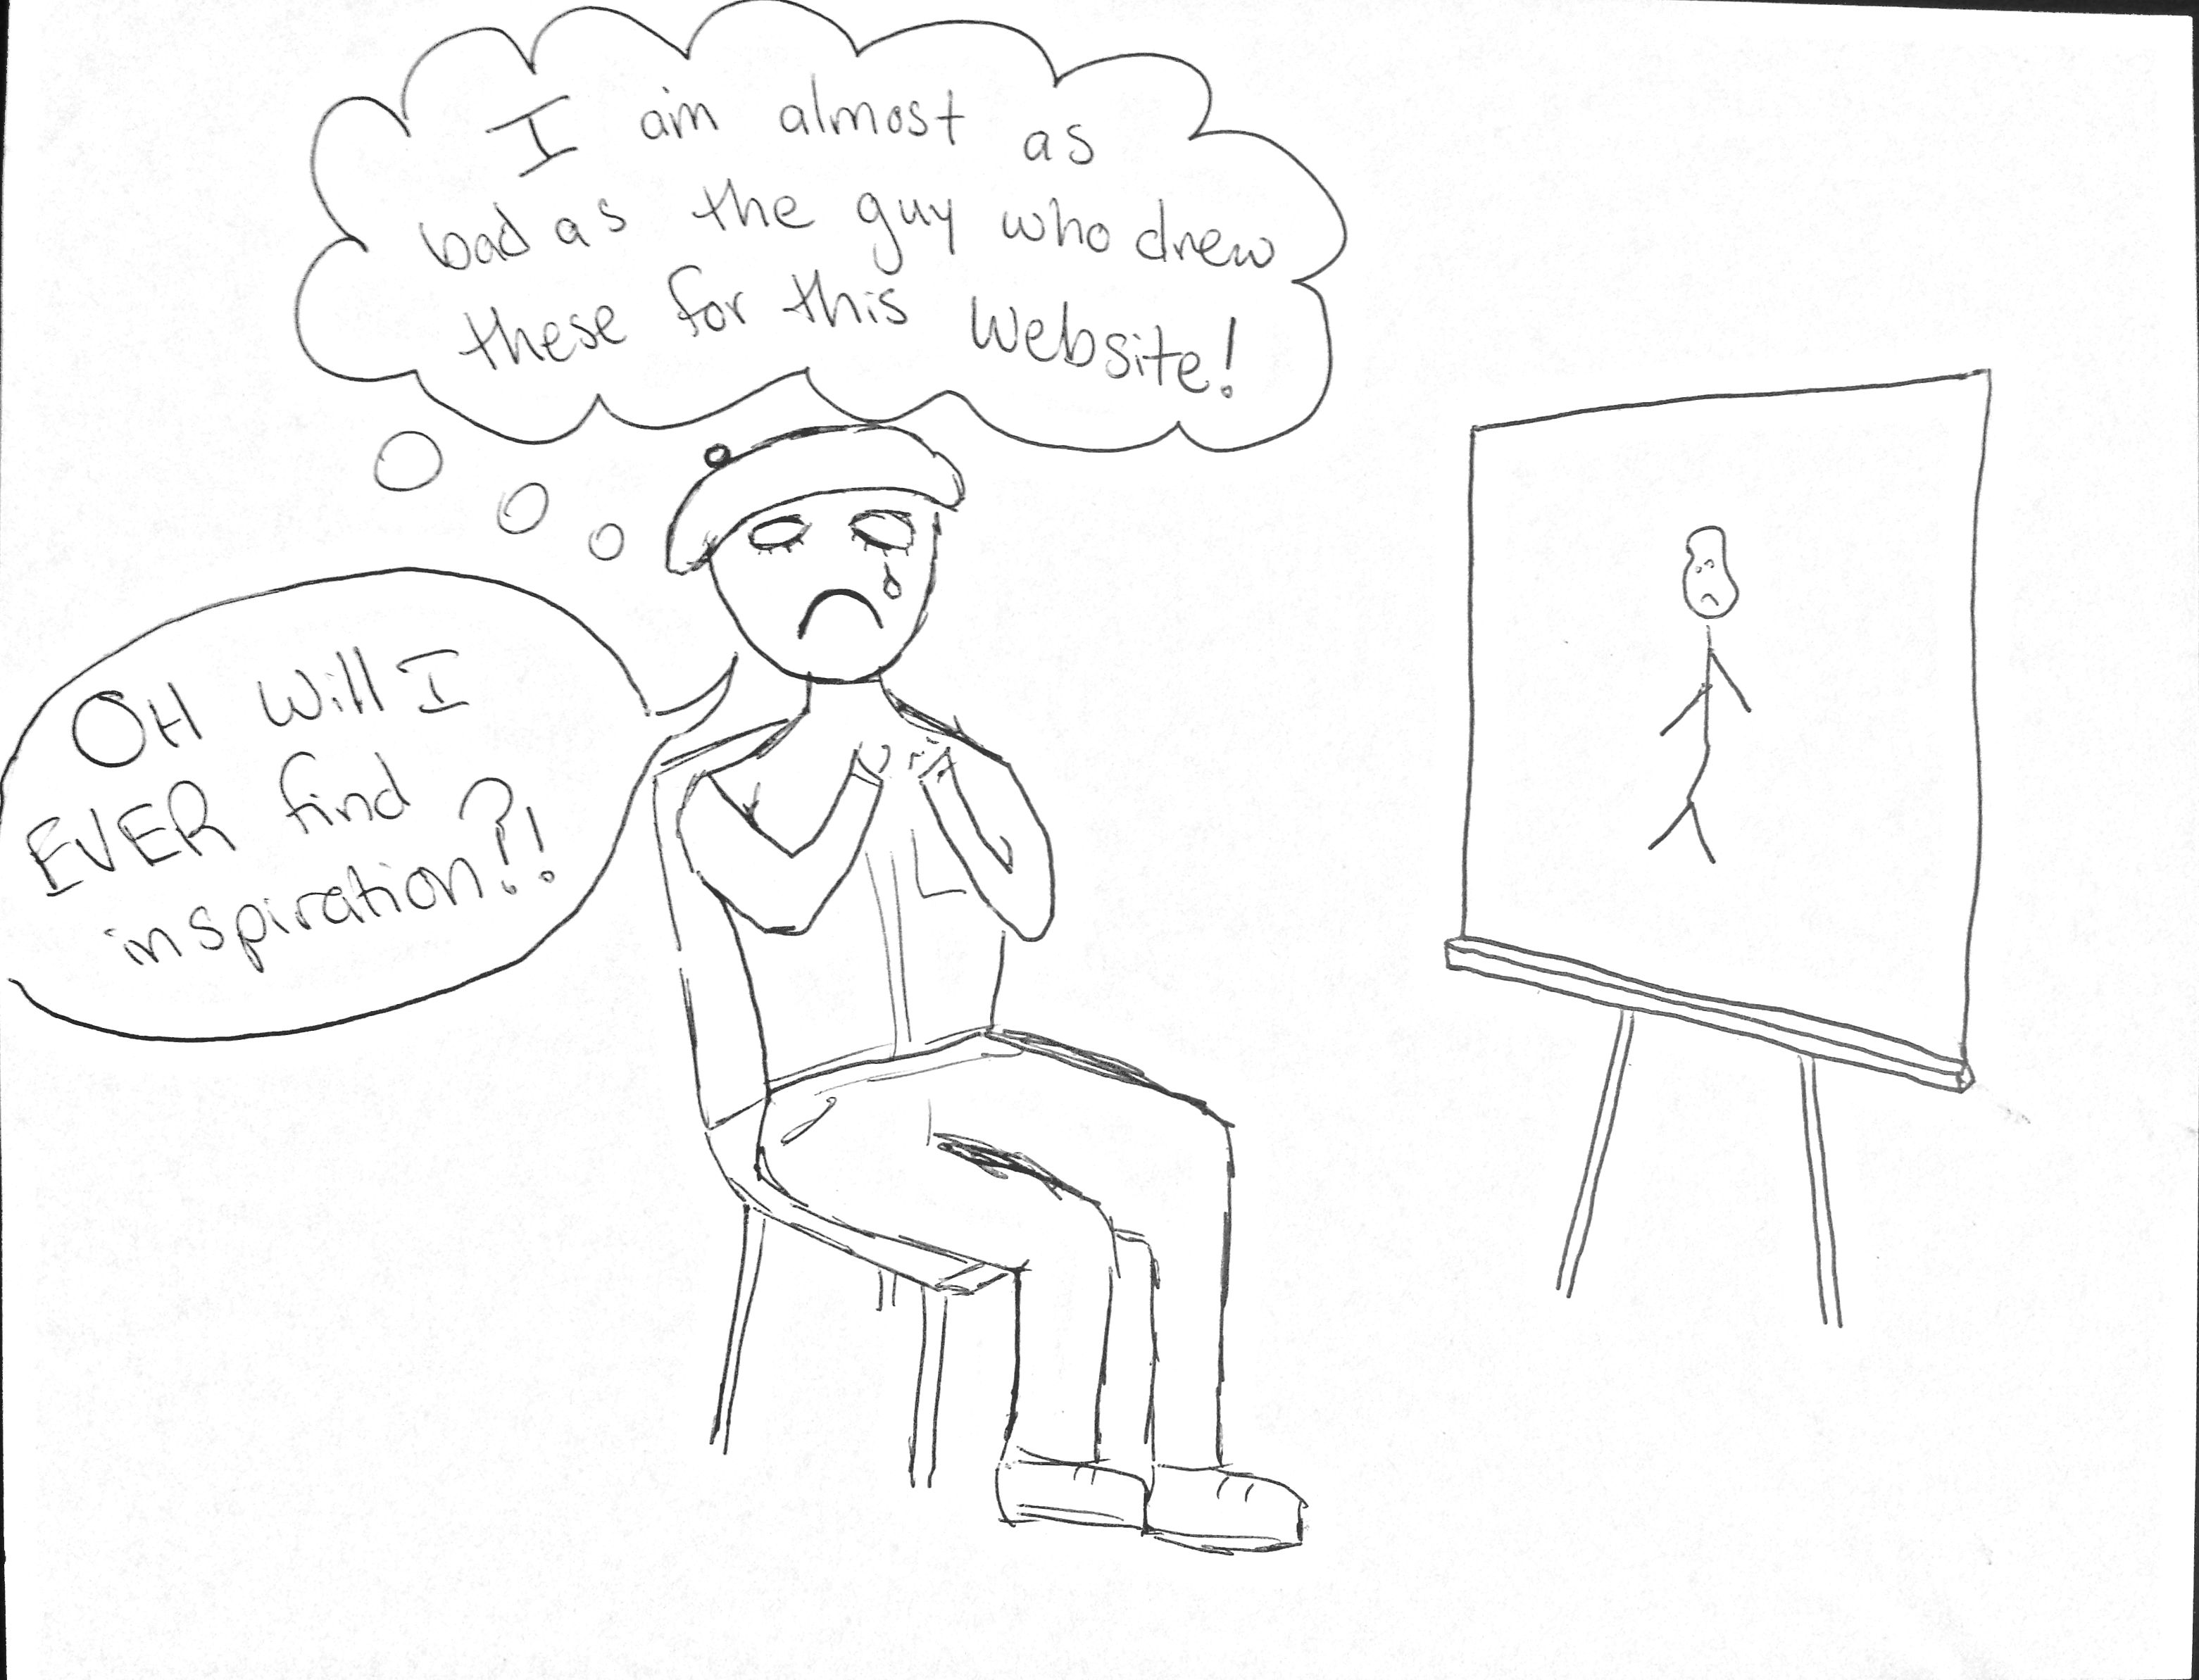 I am almost as
bad as the guy who drew
these for this website!
OH will I
EVER find
inspiration?!